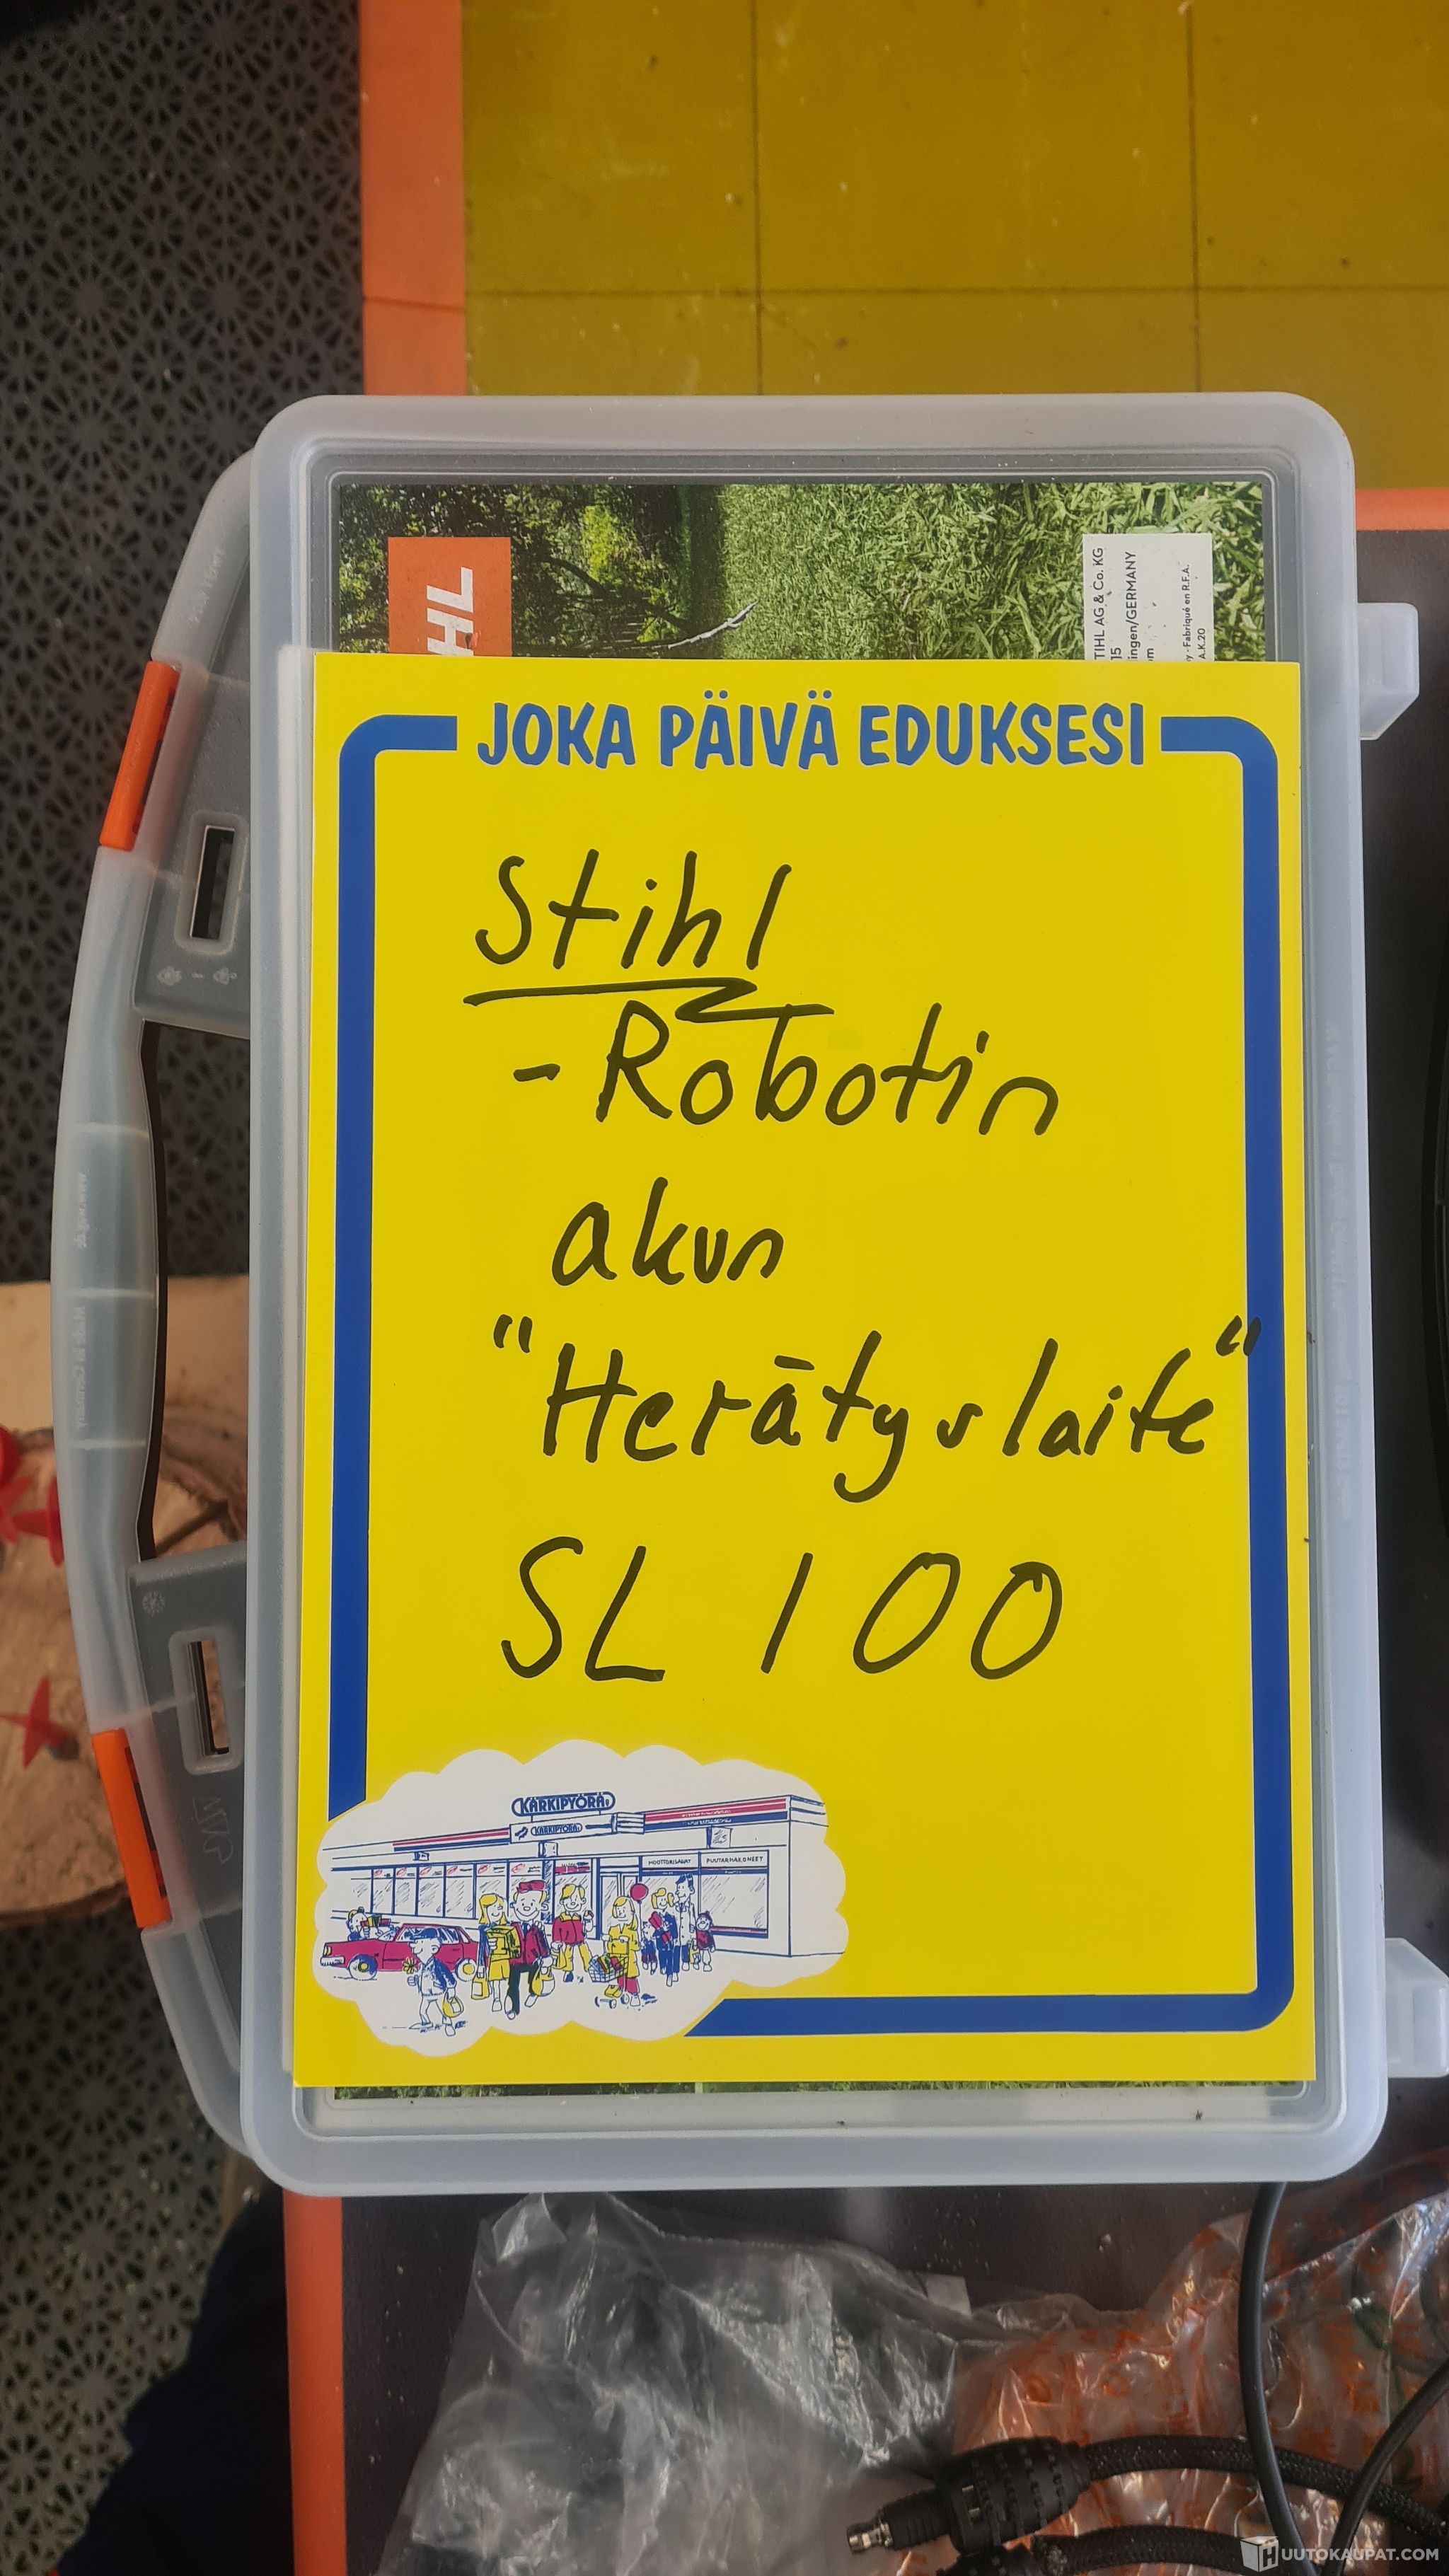 HL
TIHL AG & Co. KG
15
ingen/GERMANY
om
y · Fabriqué en R.F.A.
A.K.20
JOKA PÄIVÄ EDUKSESI
Stihl
- Robotin
akun
"Herätyslaite"
SL 100
KÄRKIPYÖRÄ
KÄRKIPYÖRÄ
MOOTTORISAHAT
PUUTARHAKONEET
HUUTOKAUPAT.COM